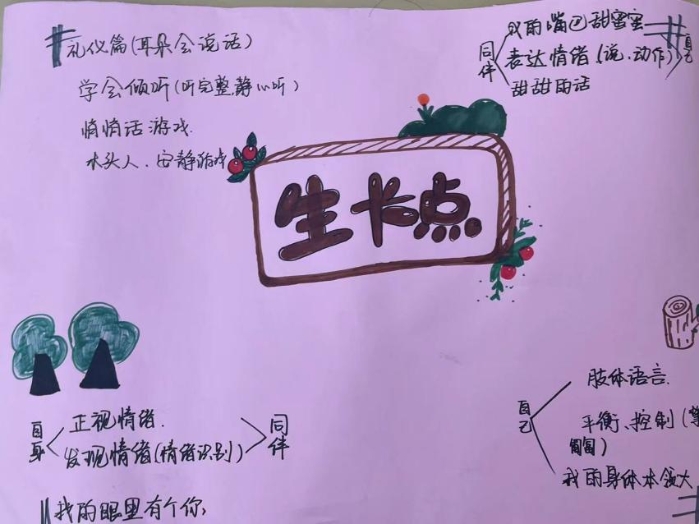 礼仪篇(耳朵会说话)
学会倾听(听完整,静心听)
悄悄话游戏.
木头人、安静游戏
我的嘴巴甜蜜蜜
同伴
表达情绪(说、动作)
自己
甜甜的话
生卡点
自身
正视情绪.
发现情绪(情绪识别)
同伴
我的眼里有个你,
肢体语言.
自己
平衡、控制(
匍匐
我的身体本领大